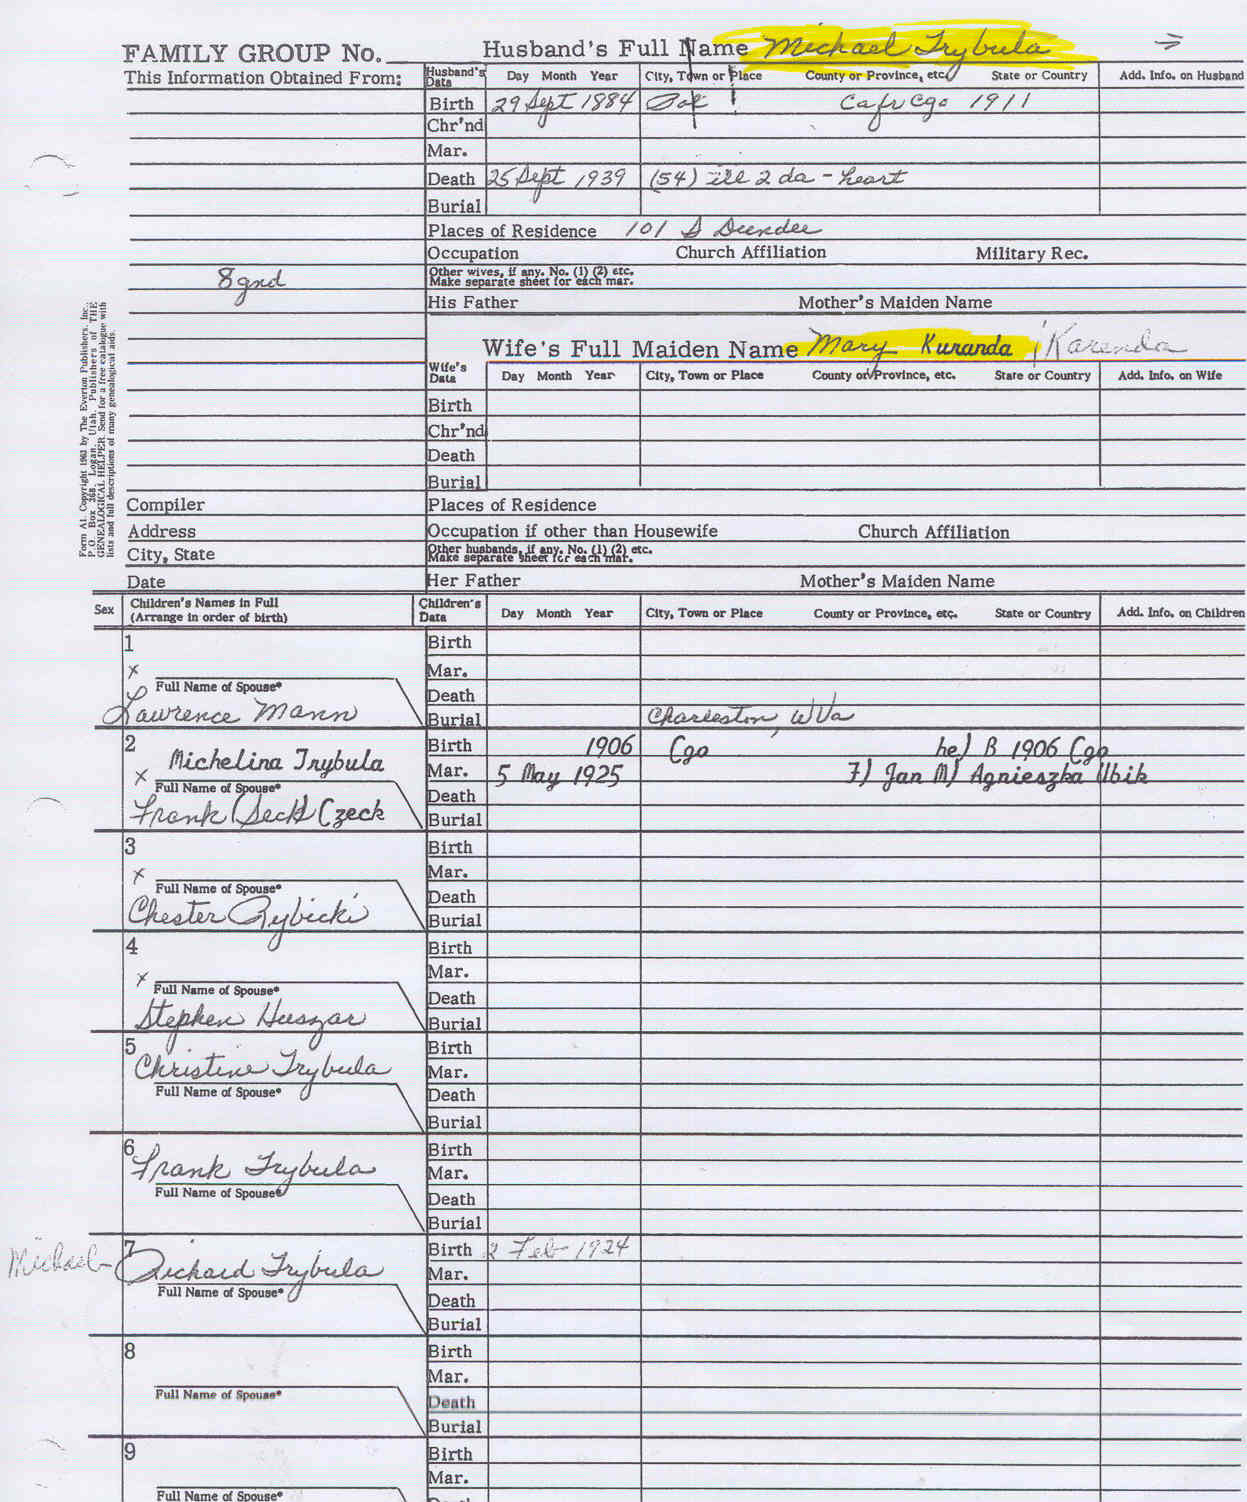 FAMILY GROUP No. Husband's Full Name Michael Trybula
This Information Obtained From: Husband's Data Day Month Year City, Town or Place County or Province, etc. State or Country Add. Info. on Husband
Birth 29 Sept 1884 Pol 1911
Chr'nd
Mar.
Death 25 Sept 1939 (54) ill 2 da - heart
Burial
Places of Residence 101 S Dundee
Occupation Church Affiliation Military Rec.
8 gnd
Other wives, if any. No. (1) (2) etc.
Make separate sheet for each mar.
His Father Mother's Maiden Name
Wife's Full Maiden Name Mary Kuranda / Karenda
Wife's Data Day Month Year City, Town or Place County or Province, etc. State or Country Add. Info. on Wife
Birth
Chr'nd
Death
Burial
Form A1. Copyright 1963 by The Everton Publishers, Inc.,
P.O. Box 368, Logan, Utah. Publishers of THE
GENEALOGICAL HELPER. Send for a free catalogue with
lists and full descriptions of many genealogical aids.
Compiler Places of Residence
Address Occupation if other than Housewife Church Affiliation
City, State Other husbands, if any. No. (1) (2) etc.
Make separate sheet for each mar.
Date Her Father Mother's Maiden Name
Sex Children's Names in Full Children's Data Day Month Year City, Town or Place County or Province, etc. State or Country Add. Info. on Children
(Arrange in order of birth)
1 Birth
x Mar.
Full Name of Spouse*
Death
Lawrence Mann Burial Charleston, W Va
2 Birth 1906 Cgo he) B 1906 Cgo
Michelina Trybula
x Mar. 5 May 1925 7) Jan M) Agnieszka Ulbik
Full Name of Spouse*
Death
Frank (Sech) Czeck
Burial
3 Birth
x Mar.
Full Name of Spouse*
Death
Chester Rybicki Burial
4 Birth
x Mar.
Full Name of Spouse*
Death
Stephen Huszar Burial
5 Birth
Christine Trybula Mar.
Full Name of Spouse*
Death
Burial
6 Birth
Frank Trybula Mar.
Full Name of Spouse*
Death
Burial
7 Birth 2 Feb 1924
Michael Richard Trybula Mar.
Full Name of Spouse*
Death
Burial
8 Birth
Mar.
Full Name of Spouse*
Death
Burial
9 Birth
Mar.
Full Name of Spouse*
Death